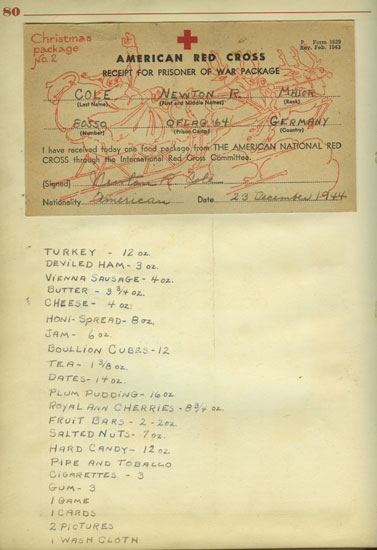 80
Christmas package No. 2
F. Form 1629
Rev. Feb. 1943
AMERICAN RED CROSS
RECEIPT FOR PRISONER OF WAR PACKAGE
COLE NEWTON R. MAJOR
(Last Name) (First and Middle Names) (Rank)
80550 OFLAG 64 GERMANY
(Number) (Prison Camp) (Country)
I have received today one food package from THE AMERICAN NATIONAL RED
CROSS through the International Red Cross Committee.
(Signed) Newton R. Cole
Nationality American Date 23 December 1944
TURKEY - 12 OZ.
DEVILED HAM - 3 OZ.
VIENNA SAUSAGE - 4 OZ.
BUTTER - 3 3/4 OZ.
CHEESE - 4 OZ.
HONI-SPREAD - 8 OZ.
JAM - 6 OZ.
BOULLION CUBES - 12
TEA - 1 3/8 OZ.
DATES - 14 OZ.
PLUM PUDDING - 16 OZ
ROYAL ANN CHERRIES - 8 3/4 OZ.
FRUIT BARS - 2 - 2 OZ.
SALTED NUTS - 7 OZ.
HARD CANDY - 12 OZ.
PIPE AND TOBACCO
CIGARETTES - 3
GUM - 3
1 GAME
1 CARDS
2 PICTURES
1 WASH CLOTH